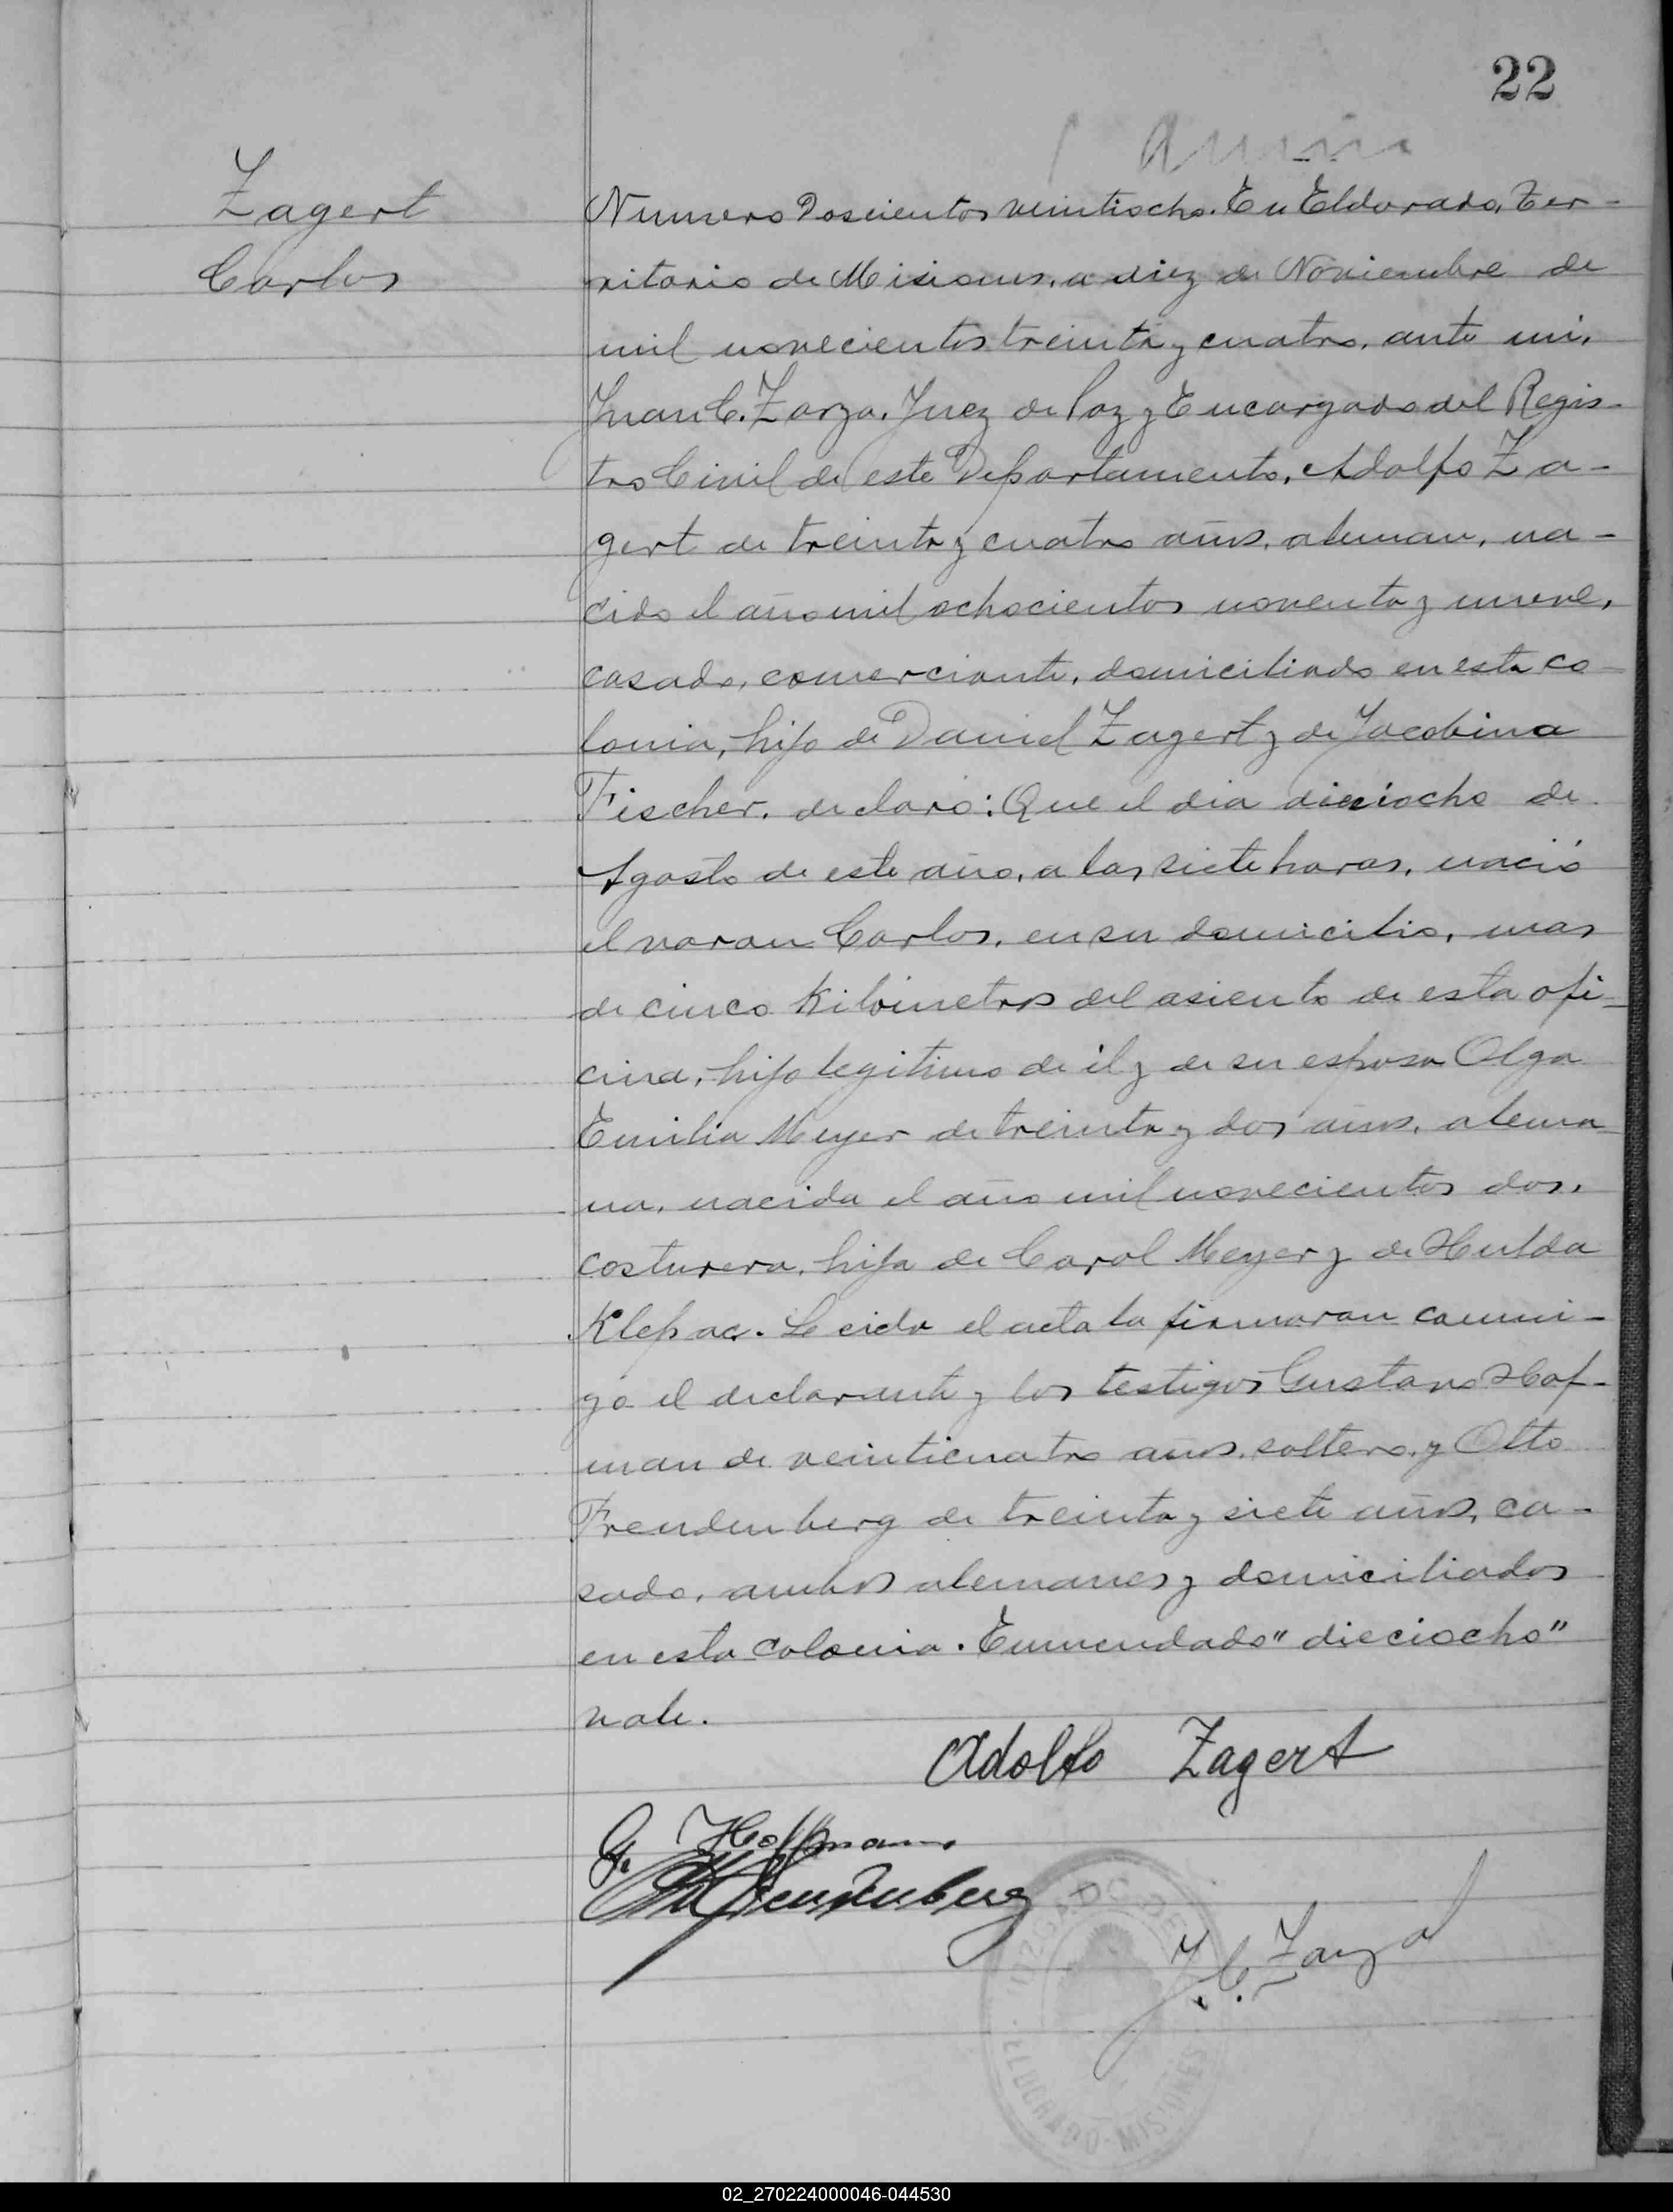 22
Zagert
Carlos
Numero Doscientos veintiocho. En Eldorado, Ter-
ritorio de Misiones, a diez de Noviembre de
mil novecientos treinta y cuatro, ante mi,
Juan C. Zarza. Juez de Paz y Encargado del Regis-
tro Civil de este Departamento, Adolfo Za-
gert de treinta y cuatro años, aleman, na-
cido el año mil ochocientos noventa y nueve,
casado, comerciante, domiciliado en esta co-
lonia, hijo de Daniel Zagert y de Jacobina
Fischer, declaro: Que el dia dieciocho de
Agosto de este año, a las siete horas, nació
el varon Carlos, en su domicilio, mas
de cinco Kilometros del asiento de esta ofi-
cina, hijo legitimo de él y de su esposa Olga
Emilia Meyer de treinta y dos años, alema
na, nacida el año mil novecientos dos,
costurera, hija de Carol Meyer y de Hulda
Klepac. Leida el acta la firmaron conmi-
go el declarante y los testigos Gustavo Hof-
man de veinticuatro años, soltero, y Otto
Freudenberg de treinta y siete años, ca-
sado, ambos alemanes y domiciliados
en esta colonia. Enmendado "dieciocho"
vale.
Adolfo Zagert
G. Hoffmann
Freudenberg
J. C. Zarza
MISIONES
02_270224000046-044530